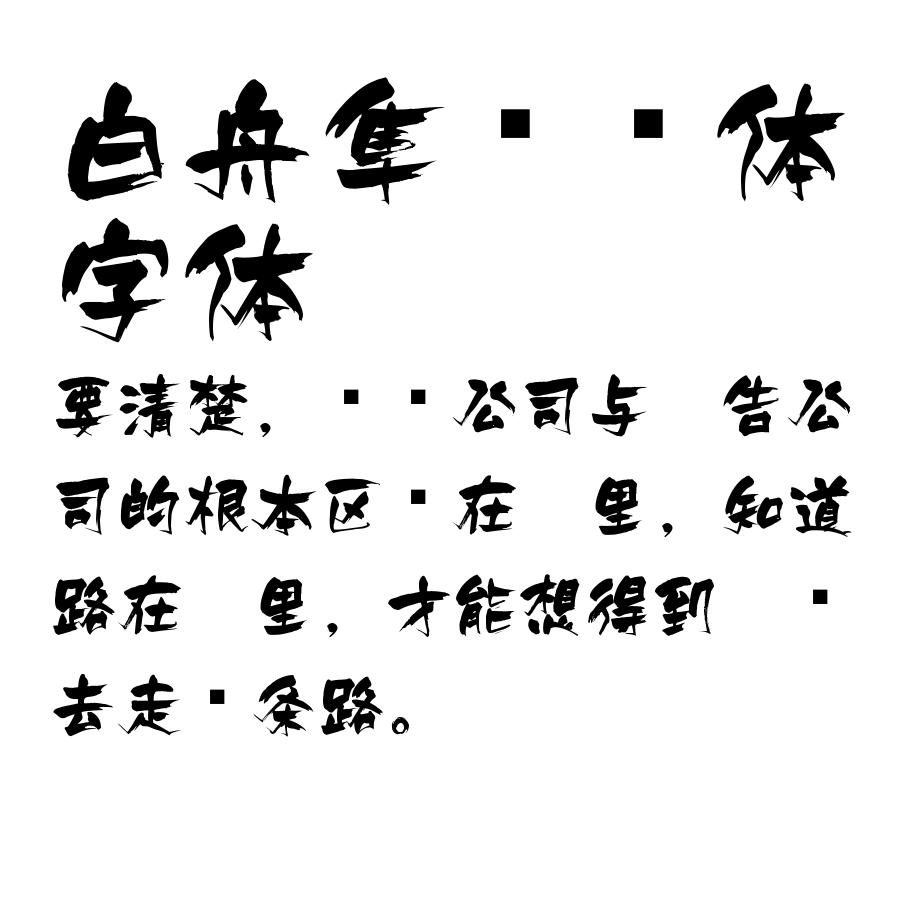 白舟隼　体
字体
要清楚，　公司与　告公
司的根本区　在　里，知道
路在　里，才能想得到
去走　条路。